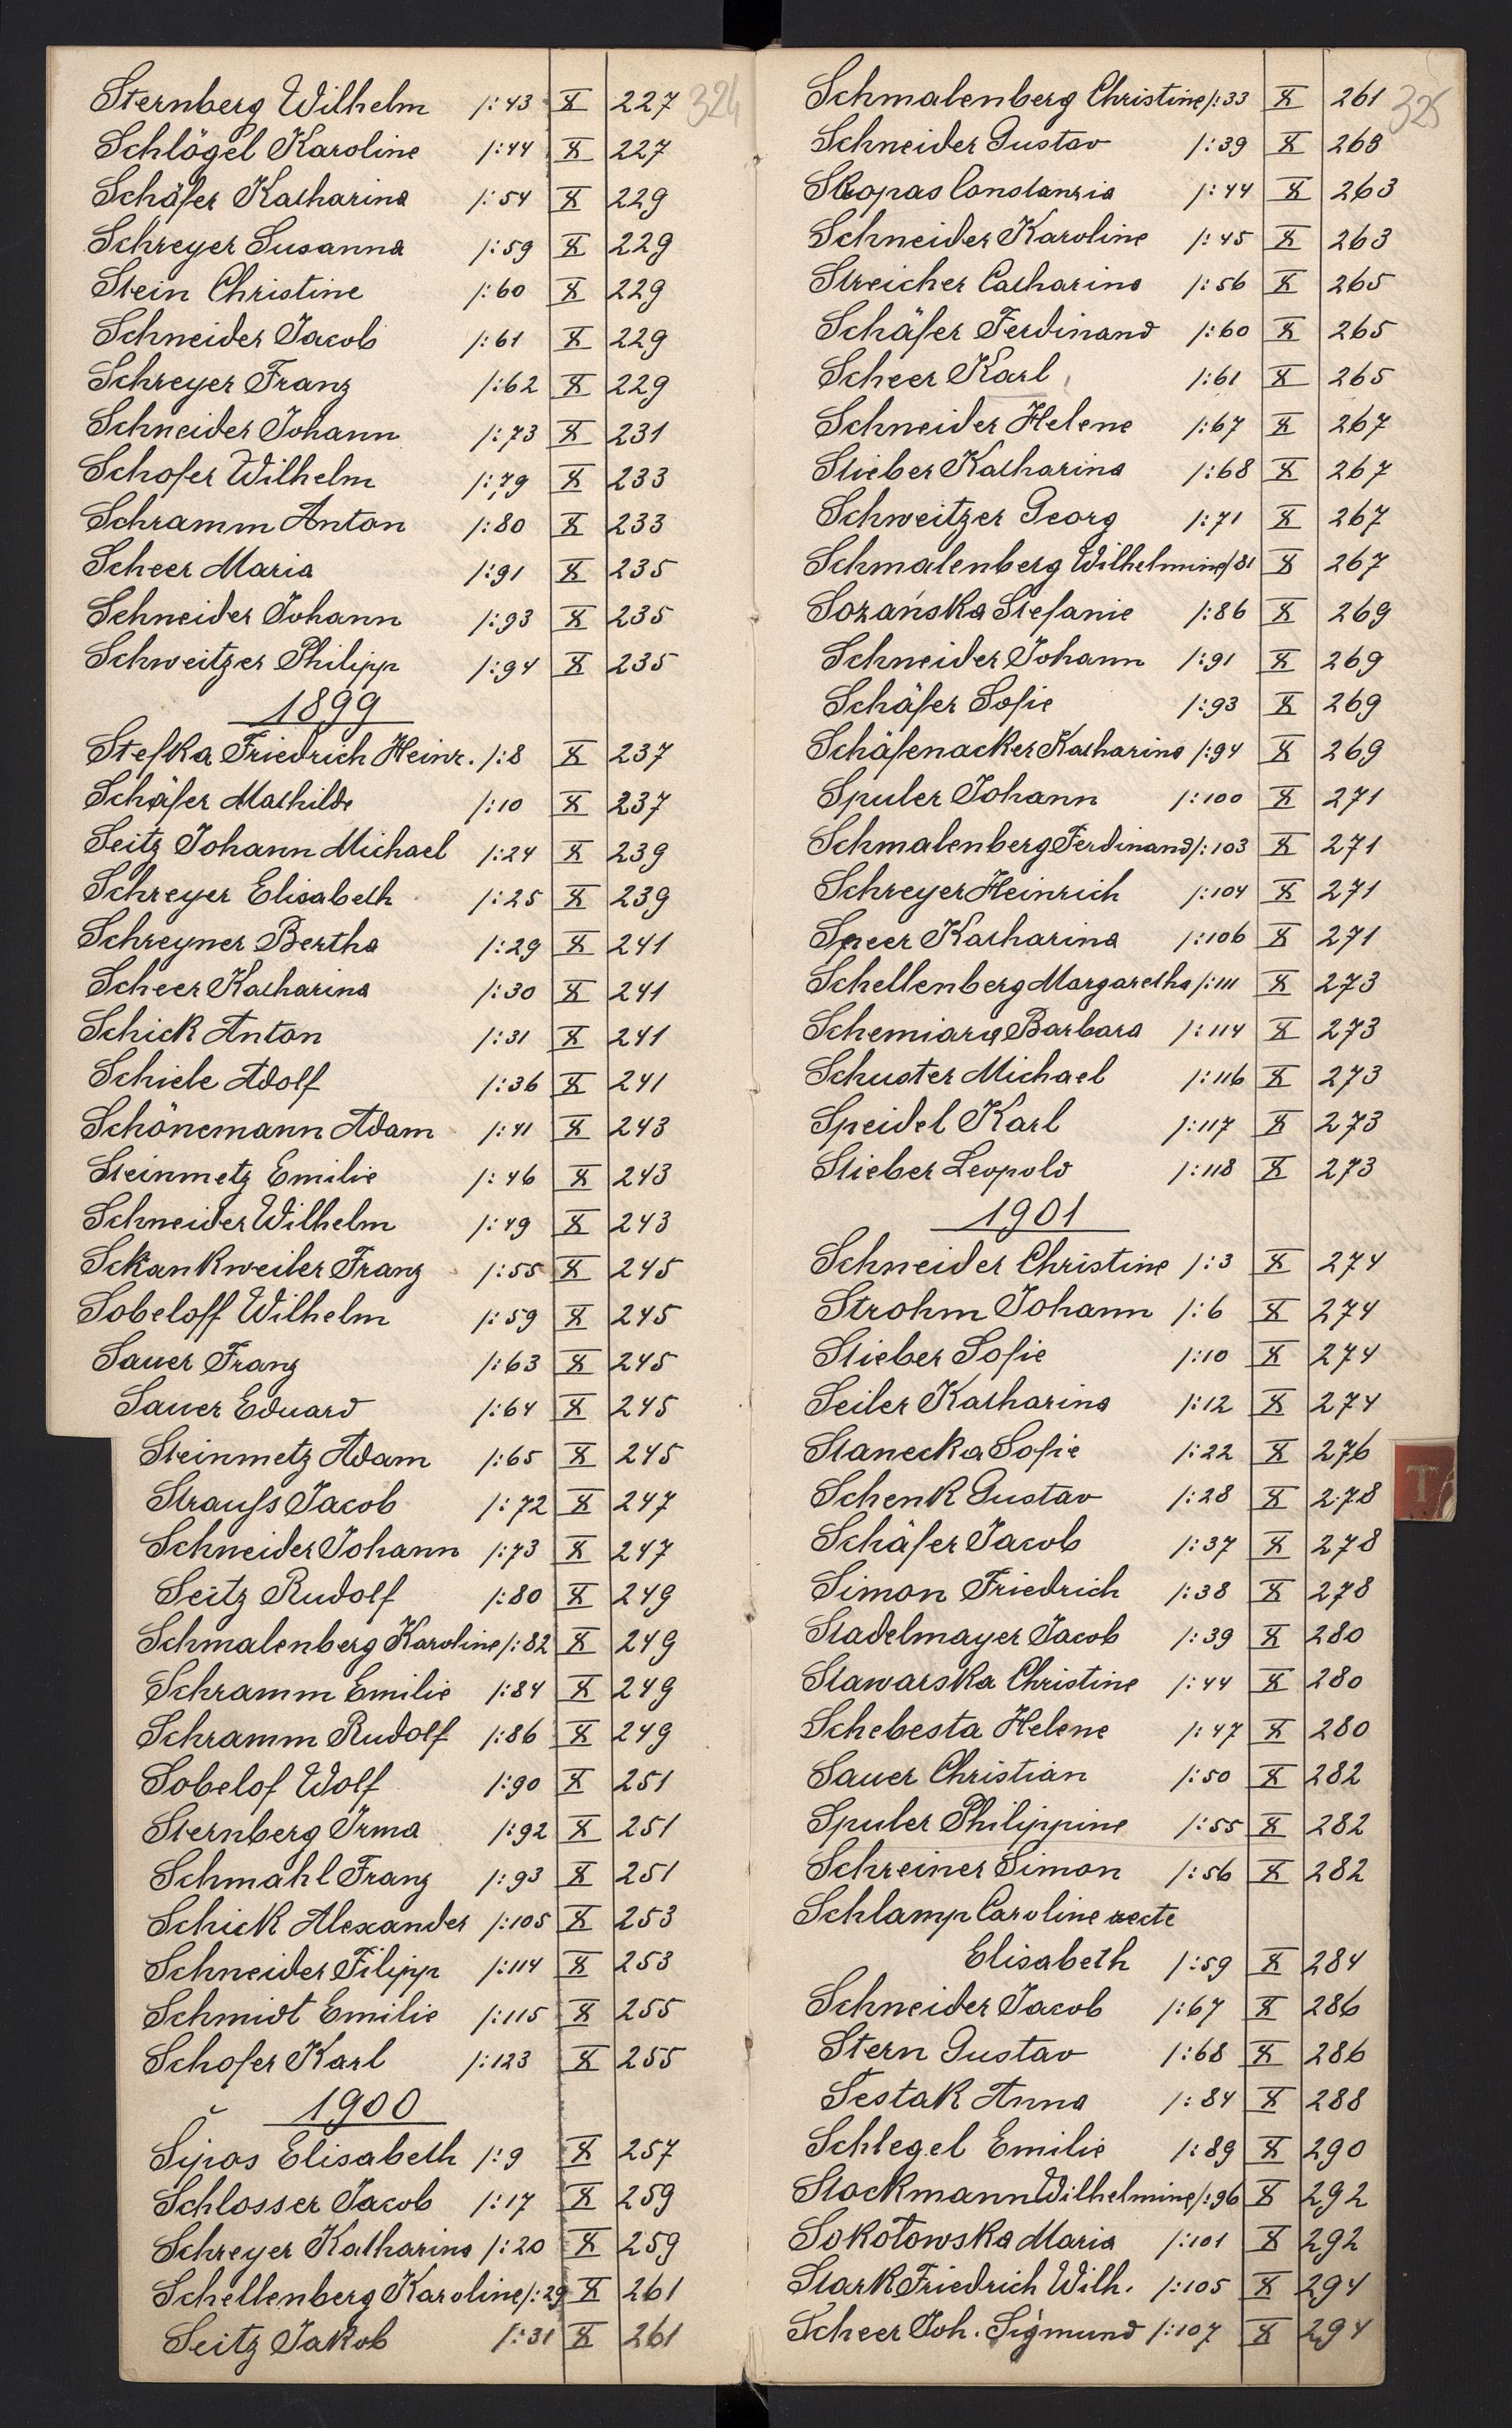 324
Sternberg Wilhelm /:43 X 227
Schlögel Karoline /:44 X 227
Schäfer Katharina /:54 X 229
Schreyer Susanna /:59 X 229
Stein Christine /:60 X 229
Schneider Jacob /:61 X 229
Schreyer Franz /:62 X 229
Schneider Johann /:73 X 231
Schofer Wilhelm /:79 X 233
Schramm Anton /:80 X 233
Scheer Maria /:91 X 235
Schneider Johann /:93 X 235
Schweitzer Philipp /:94 X 235
1899
Stefka Friedrich Heinr. /:8 X 237
Schäfer Mathilde /:10 X 237
Seitz Johann Michael /:24 X 239
Schreyer Elisabeth /:25 X 239
Schreyner Bertha /:29 X 241
Scheer Katharina /:30 X 241
Schick Anton /:31 X 241
Schiele Adolf /:36 X 241
Schönemann Adam /:41 X 243
Steinmetz Emilie /:46 X 243
Schneider Wilhelm /:49 X 243
Sckankweiler Franz /:55 X 245
Sobeloff Wilhelm /:59 X 245
Sauer Franz /:63 X 245
Sauer Eduard /:64 X 245
Steinmetz Adam /:65 X 245
Straufs Jacob /:72 X 247
Schneider Johann /:73 X 247
Seitz Rudolf /:80 X 249
Schmalenberg Karoline /:82 X 249
Schramm Emilie /:84 X 249
Schramm Rudolf /:86 X 249
Sobelof Wolf /:90 X 251
Sternberg Irma /:92 X 251
Schmahl Franz /:93 X 251
Schick Alexander /:105 X 253
Schneider Filipp /:114 X 253
Schmidt Emilie /:115 X 255
Schofer Karl /:123 X 255
1900
Šipos Elisabeth /:9 X 257
Schlosser Jacob /:17 X 259
Schreyer Katharina /:20 X 259
Schellenberg Karoline /:29 X 261
Seitz Jakob /:31 X 261
325
Schmalenberg Christine /:33 X 261
Schneider Gustav /:39 X 263
Constanzia /:44 X 263
Schneider Karoline /:45 X 263
Streicher Catharina /:56 X 265
Schäfer Ferdinand /:60 X 265
Scheer Karl /:61 X 265
Schneider Helene /:67 X 267
Stieber Katharina /:68 X 267
Schweitzer Georg /:71 X 267
Schmalenberg Wilhelmine /81 X 267
Sozańska Stefanie /:86 X 269
Schneider Johann /:91 X 269
Schäfer Sofie /:93 X 269
Schäfenacker Katharina /:94 X 269
Spuler Johann /:100 X 271
Schmalenberg Ferdinand /:103 X 271
Schreyer Heinrich /:104 X 271
Speer Katharina /:106 X 271
Schellenberg Margaretha /:111 X 273
Barbara /:114 X 273
Schuster Michael /:116 X 273
Speidel Karl /:117 X 273
Stieber Leopold /:118 X 273
1901
Schneider Christine /:3 X 274
Strohm Johann /:6 X 274
Stieber Sofie /:10 X 274
Seiler Katharina /:12 X 274
Stanecka Sofie /:22 X 276
Schenk Gustav /:28 X 278
Schäfer Jacob /:37 X 278
Simon Friedrich /:38 X 278
Stadelmayer Jacob /:39 X 280
Stawarska Christine /:44 X 280
Schebesta Helene /:47 X 280
Sauer Christian /:50 X 282
Spuler Philippine /:55 X 282
Schreiner Simon /:56 X 282
Schlamp Caroline recte
Elisabeth /:59 X 284
Schneider Jacob /:67 X 286
Stern Gustav /:68 X 286
Šestak Anna /:84 X 288
Schlegel Emilie /:89 X 290
Stockmann Wilhelmine /:96 X 292
Sokołowska Maria /:101 X 292
Stark Friedrich Wilh. /:105 X 294
Scheer Joh. Sigmund /:107 X 294
T